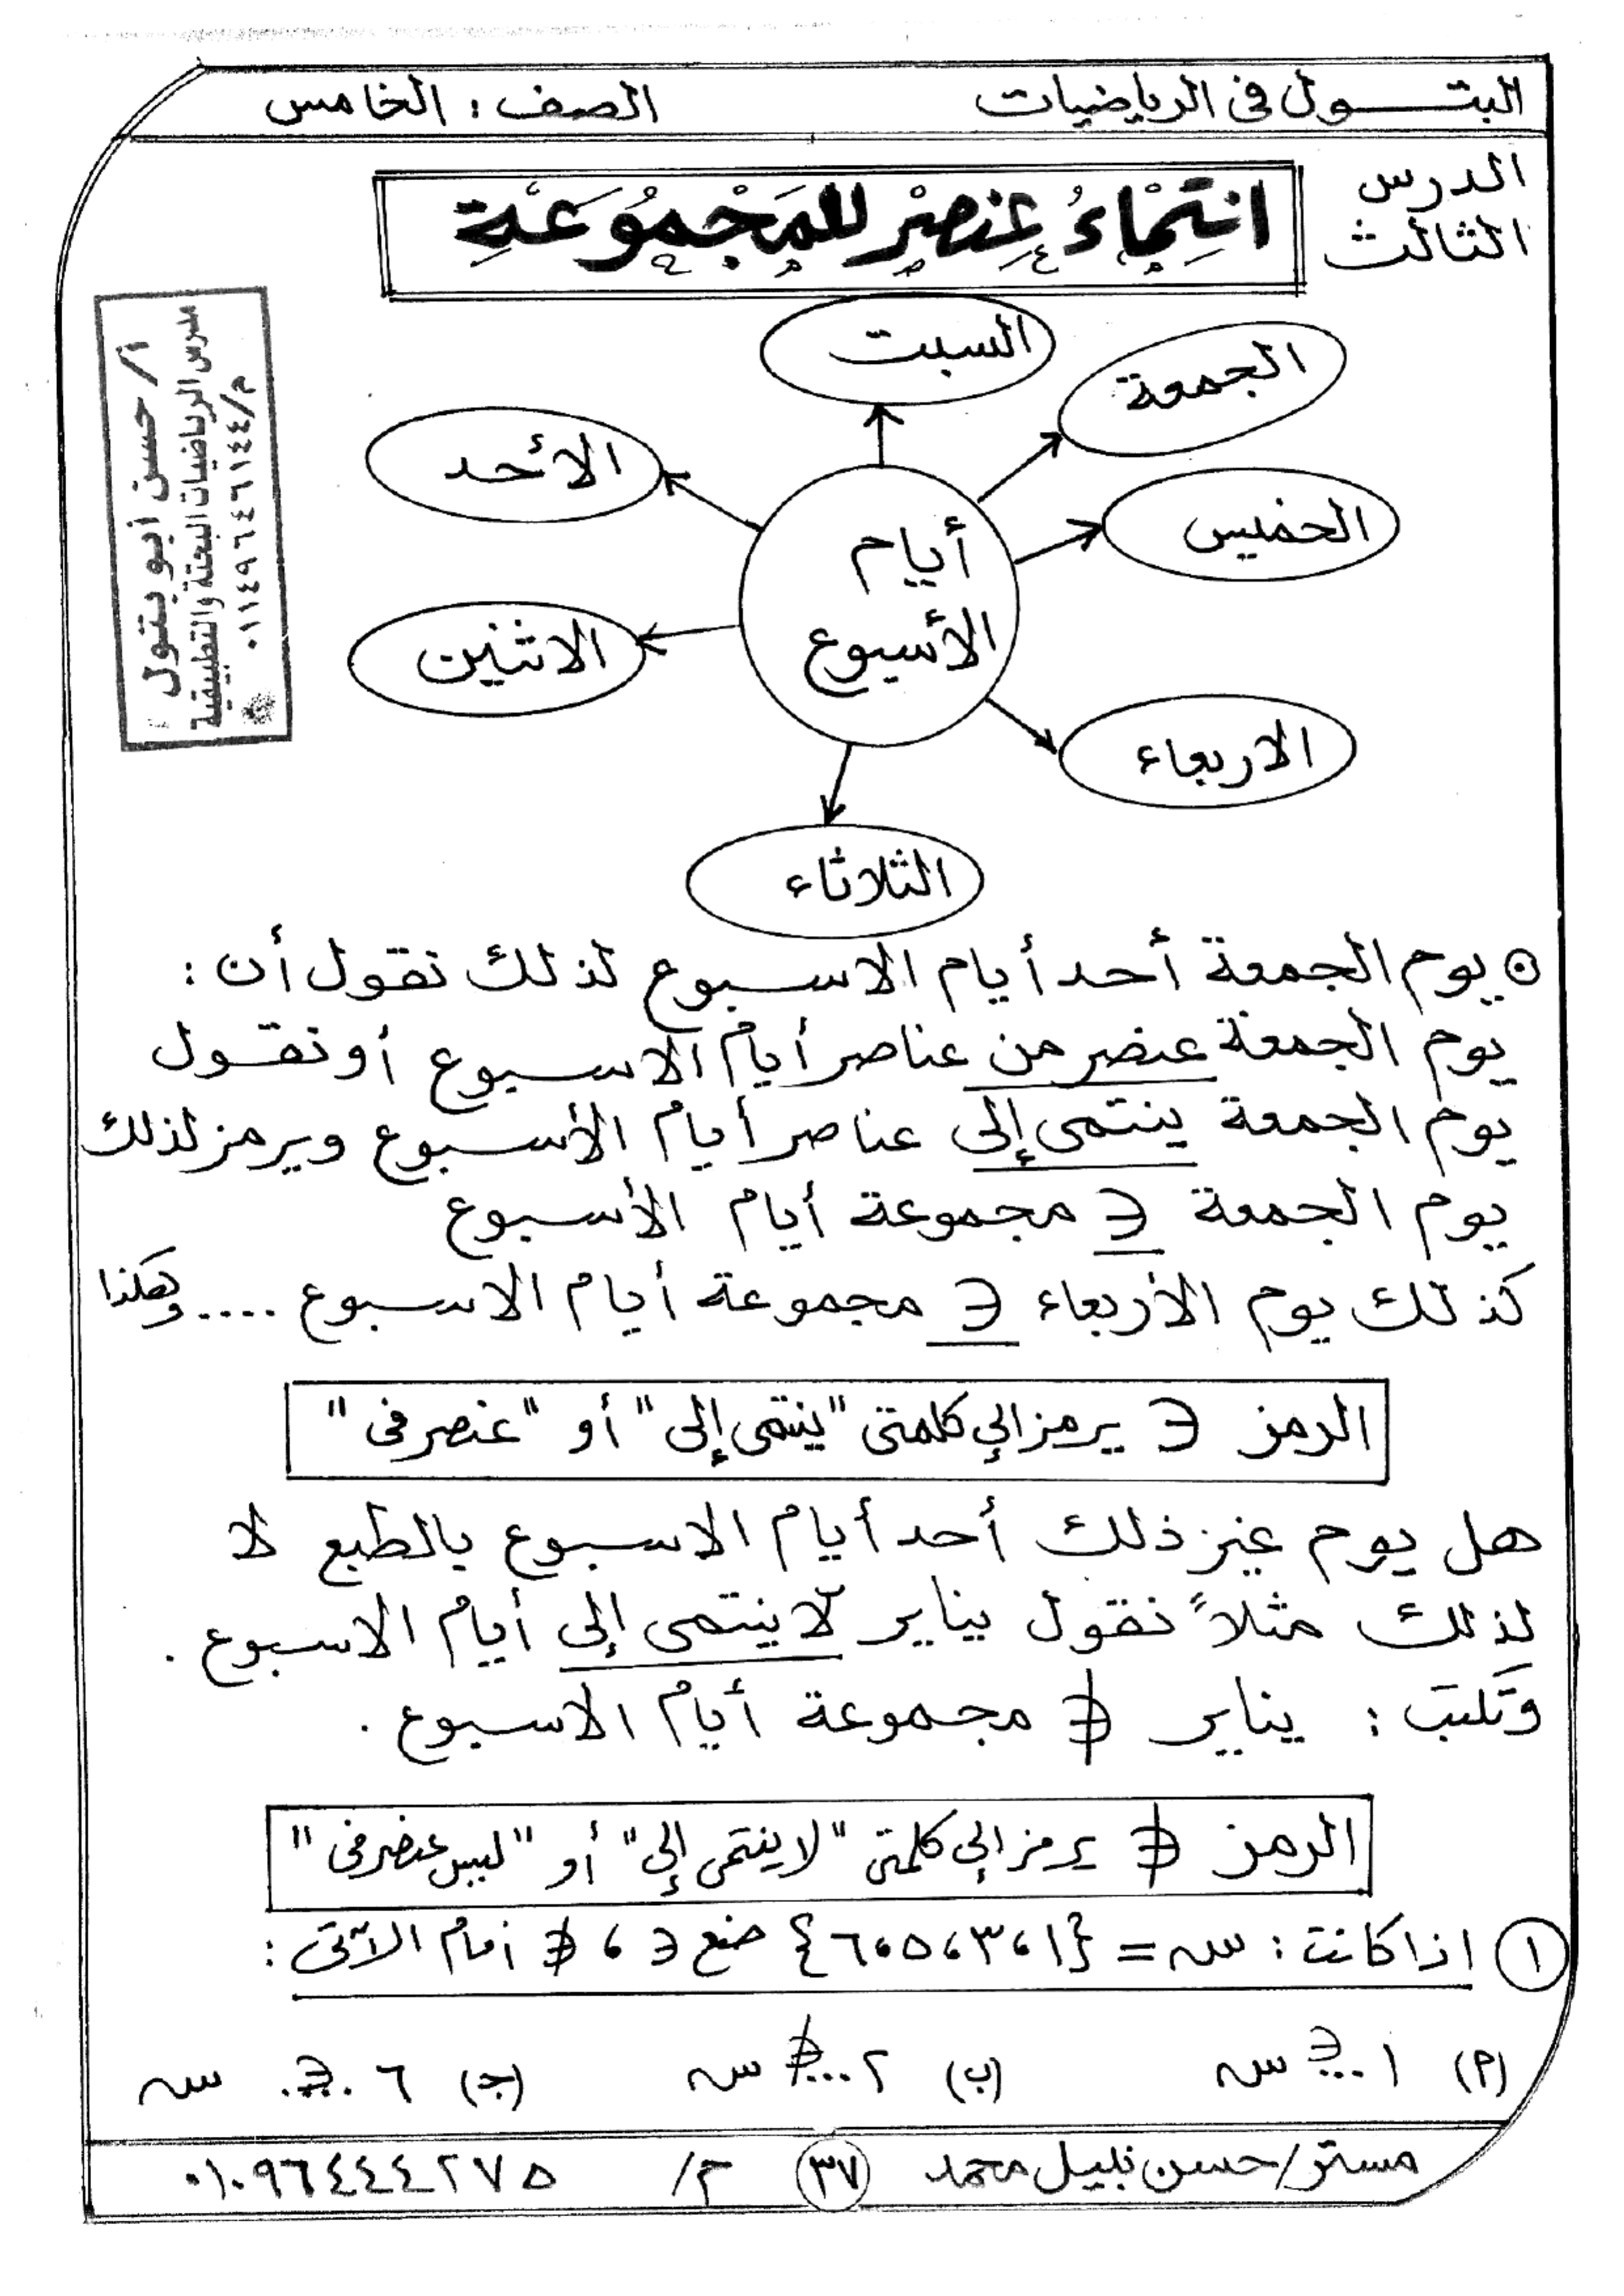 البتول فى الرياضيات
الصف : الخامس
الدرس
الثالث
انتِمْاءُ عِنصْر للمَجْمُوَعَةِ
أ/ حسن ابو بتول
مدرس الرياضيات البحتة والتطبيقية
م/٠١١٤٩٦٤٦١٤٤
السبت
الجمعة
الأحد
الخميس
أيام
الأسبوع
الاثنين
الاربعاء
الثلاثاء
يوم الجمعة أحد أيام الاسبوع لذلك نقول أن :
يوم الجمعة عنصر من عناصر أيام الاسبوع أو نقول
يوم الجمعة ينتمى إلى عناصر أيام الأسبوع ويرمز لذلك
يوم الجمعة ∋ مجموعة أيام الأسبوع
كذلك يوم الأربعاء ∋ مجموعة أيام الاسبوع .... وهكذا
الرمز ∋ يرمز الي كلمتى "ينتمى إلى" أو "عنصر فى"
هل يوم غير ذلك أحد أيام الاسبوع بالطبع لا
لذلك مثلاً نقول يناير لا ينتمى إلى أيام الاسبوع .
وتكتب : يناير ∌ مجموعة أيام الاسبوع .
الرمز ∌ يرمز الي كلمتى "لا ينتمى إلى" أو "ليس عنصر فى"
١ اذا كانت : س = {١ ، ٣ ، ٥ ، ٦} ضع ∋ ، ∌ أمام الآتى :
(أ) ١ ..∋.. س (ب) ٢ ..∌.. س (ج) ٦ ..∋.. س
مستر/ حسن نبيل محمد ٣٧ م/ ٠١٠٩٦٤٤٤٢٧٥